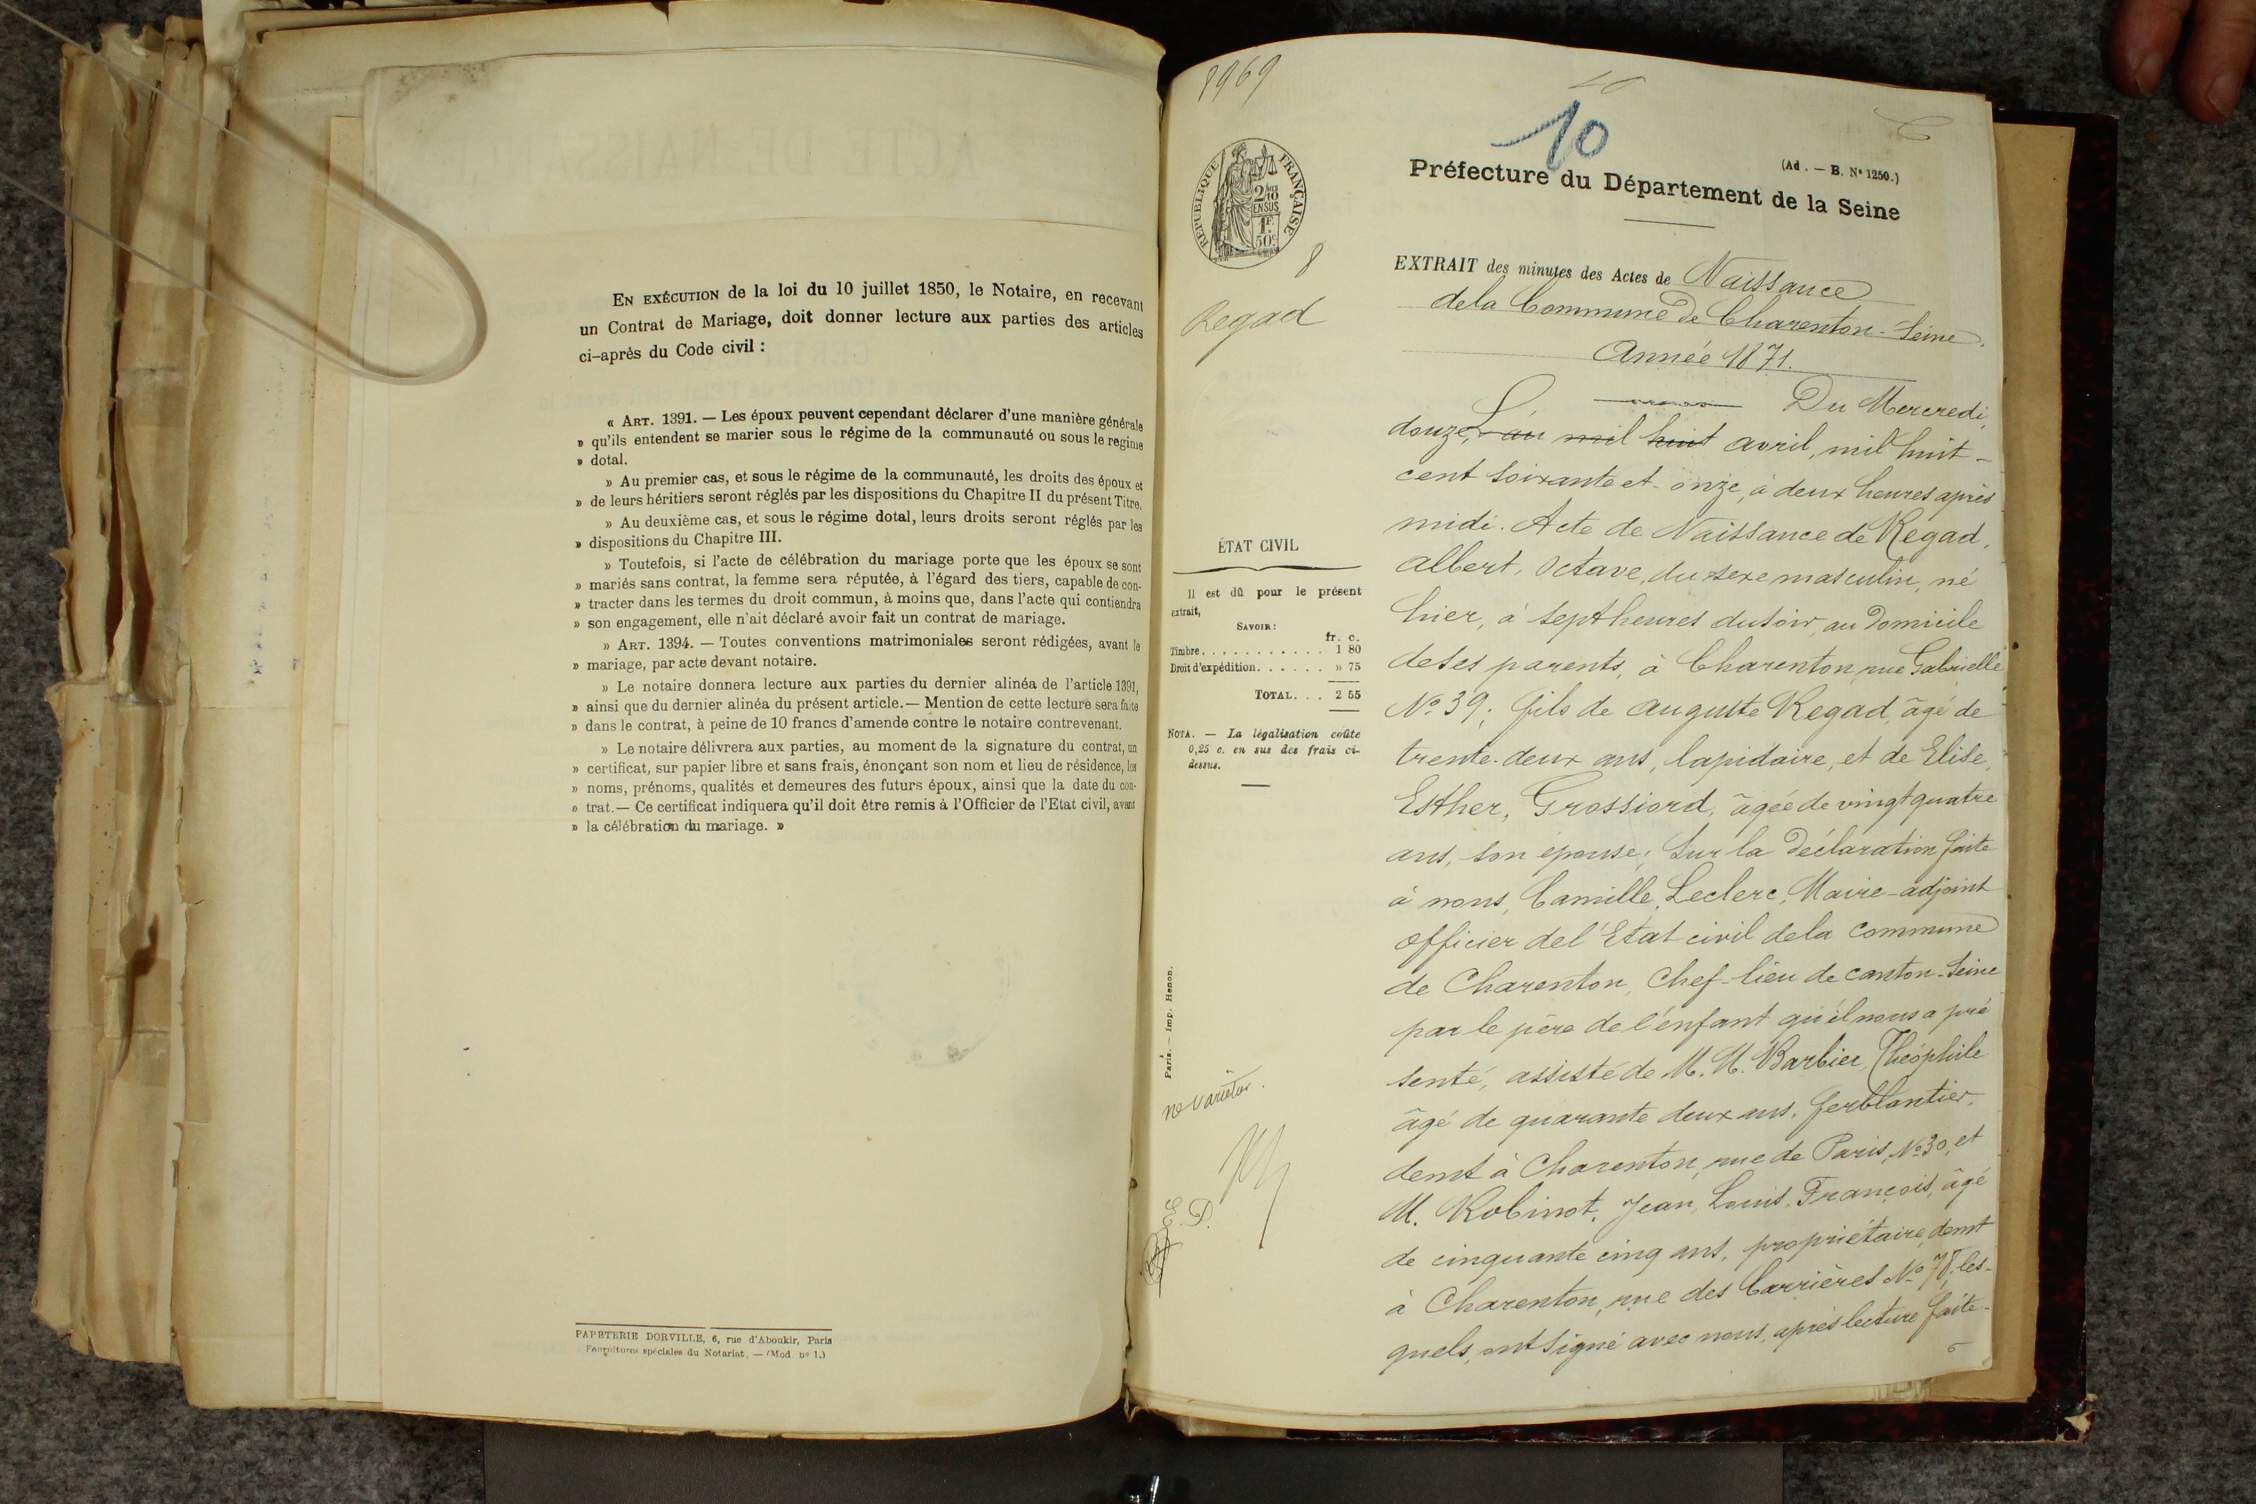 EN EXÉCUTION de la loi du 10 juillet 1850, le Notaire, en recevant
un Contrat de Mariage, doit donner lecture aux parties des articles
ci-après du Code civil :
« ART. 1391. — Les époux peuvent cependant déclarer d'une manière générale
» qu'ils entendent se marier sous le régime de la communauté ou sous le regime
» dotal.
» Au premier cas, et sous le régime de la communauté, les droits des époux et
» de leurs héritiers seront réglés par les dispositions du Chapitre II du présent Titre.
» Au deuxième cas, et sous le régime dotal, leurs droits seront réglés par les
» dispositions du Chapitre III.
» Toutefois, si l'acte de célébration du mariage porte que les époux se sont
» mariés sans contrat, la femme sera réputée, à l'égard des tiers, capable de con-
» tracter dans les termes du droit commun, à moins que, dans l'acte qui contiendra
» son engagement, elle n'ait déclaré avoir fait un contrat de mariage.
» ART. 1394. — Toutes conventions matrimoniales seront rédigées, avant le
» mariage, par acte devant notaire.
» Le notaire donnera lecture aux parties du dernier alinéa de l'article 1391,
» ainsi que du dernier alinéa du présent article. — Mention de cette lecture sera faite
» dans le contrat, à peine de 10 francs d'amende contre le notaire contrevenant.
» Le notaire délivrera aux parties, au moment de la signature du contrat, un
» certificat, sur papier libre et sans frais, énonçant son nom et lieu de résidence, les
» noms, prénoms, qualités et demeures des futurs époux, ainsi que la date du con-
» trat. — Ce certificat indiquera qu'il doit être remis à l'Officier de l'Etat civil, avant
» la célébration du mariage. »
PAPETERIE DORVILLE, 6, rue d'Aboukir, Paris
Fournitures spéciales du Notariat. — (Mod. nº 1.)
8969
10
(Ad. — B. Nº 1250.)
Préfecture du Département de la Seine
RÉPUBLIQUE FRANÇAISE
2/10
EN SUS
1F
50c
8
Regad
EXTRAIT des minutes des Actes de Naissance
de la Commune de Charenton - Seine.
Année 1871.
Du Mercredi,
douze, L'an mil huit avril, mil huit-
cent soixante et onze, à deux heures après
midi. Acte de Naissance de Regad,
Albert, Octave, du sexe masculin, né
hier, à sept heures du soir, au domicile
de ses parents, à Charenton, rue Gabrielle
Nº 39; fils de Auguste Regad, âgé de
trente-deux ans, lapidaire, et de Elise,
Esther, Grossiord, âgée de vingt quatre
ans, son épouse; Sur la déclaration faite
à nous, Camille, Leclerc, Maire-adjoint
officier de l'Etat civil de la Commune
de Charenton, Chef-lieu de canton - Seine
par le père de l'enfant qu'il nous a pré
senté, assisté de M. M. Barbier, Théophile
âgé de quarante deux ans, ferblantier,
demt à Charenton, rue de Paris, Nº 30, et
M. Robinot, Jean, Louis, François, âgé
de cinquante cinq ans, propriétaire, demt
à Charenton, rue des Carrières Nº 78, les-
quels, ont signé avec nous, après lecture faite.
ÉTAT CIVIL
Il est dû pour le présent
extrait,
SAVOIR :
fr. c.
Timbre . . . . . . . . . . . 1 80
Droit d'expédition . . . . . . » 75
TOTAL . . . 2 55
NOTA. — La légalisation coûte
0,25 c. en sus des frais ci-
dessus.
Paris. — Imp. Henon.
ne varietur.
D.